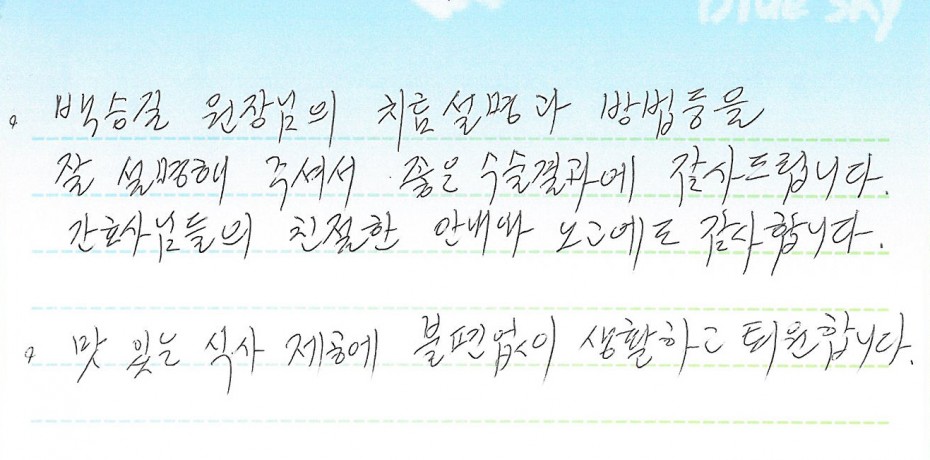 blue sky
。 백승길 원장님의 치료설명과 방법등을
잘 설명해 주셔서 좋은 수술결과에 감사드립니다.
간호사님들의 친절한 안내와 노고에도 감사합니다.
。 맛 있는 식사 제공에 불편없이 생활하고 퇴원합니다.